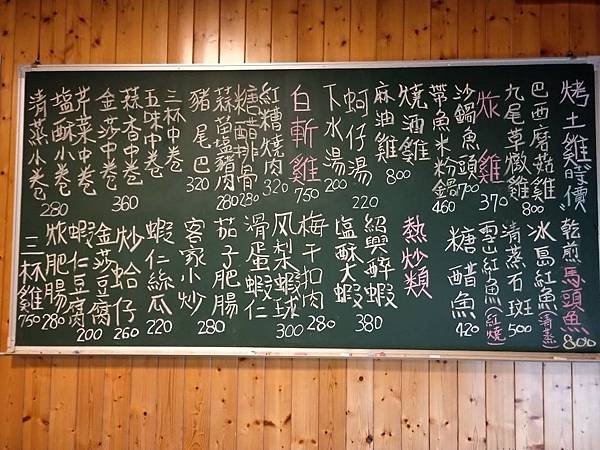 烤土雞"時價"
巴西磨菇雞
九尾草燉雞 800
炸雞 370
沙鍋魚頭 700
帶魚米粉鍋 460
燒酒雞
麻油雞 800
蚵仔湯 220
下水湯 200
白斬雞 750
紅糟燒肉 320
糖醋排骨 280
蒜苗鹽豬肉 280
豬尾巴 320
三杯中卷
五味中卷
蒜杏中卷 360
金莎中卷
芹菜中卷
塩酥小卷
清蒸小卷 280
乾煎馬頭魚 800
冰島紅魚(清蒸)
清蒸石斑 500
紅魚(紅燒)
糖醋魚 420
熱炒類
紹興醉蝦 380
塩酥大蝦
梅干扣肉 280
鳳梨蝦球 300
滑蛋蝦仁
茄子肥腸
客家小炒 280
蝦仁絲瓜 220
炒蛤仔 260
金莎豆腐
蝦仁豆腐 200
炸肥腸 280
三杯雞 750